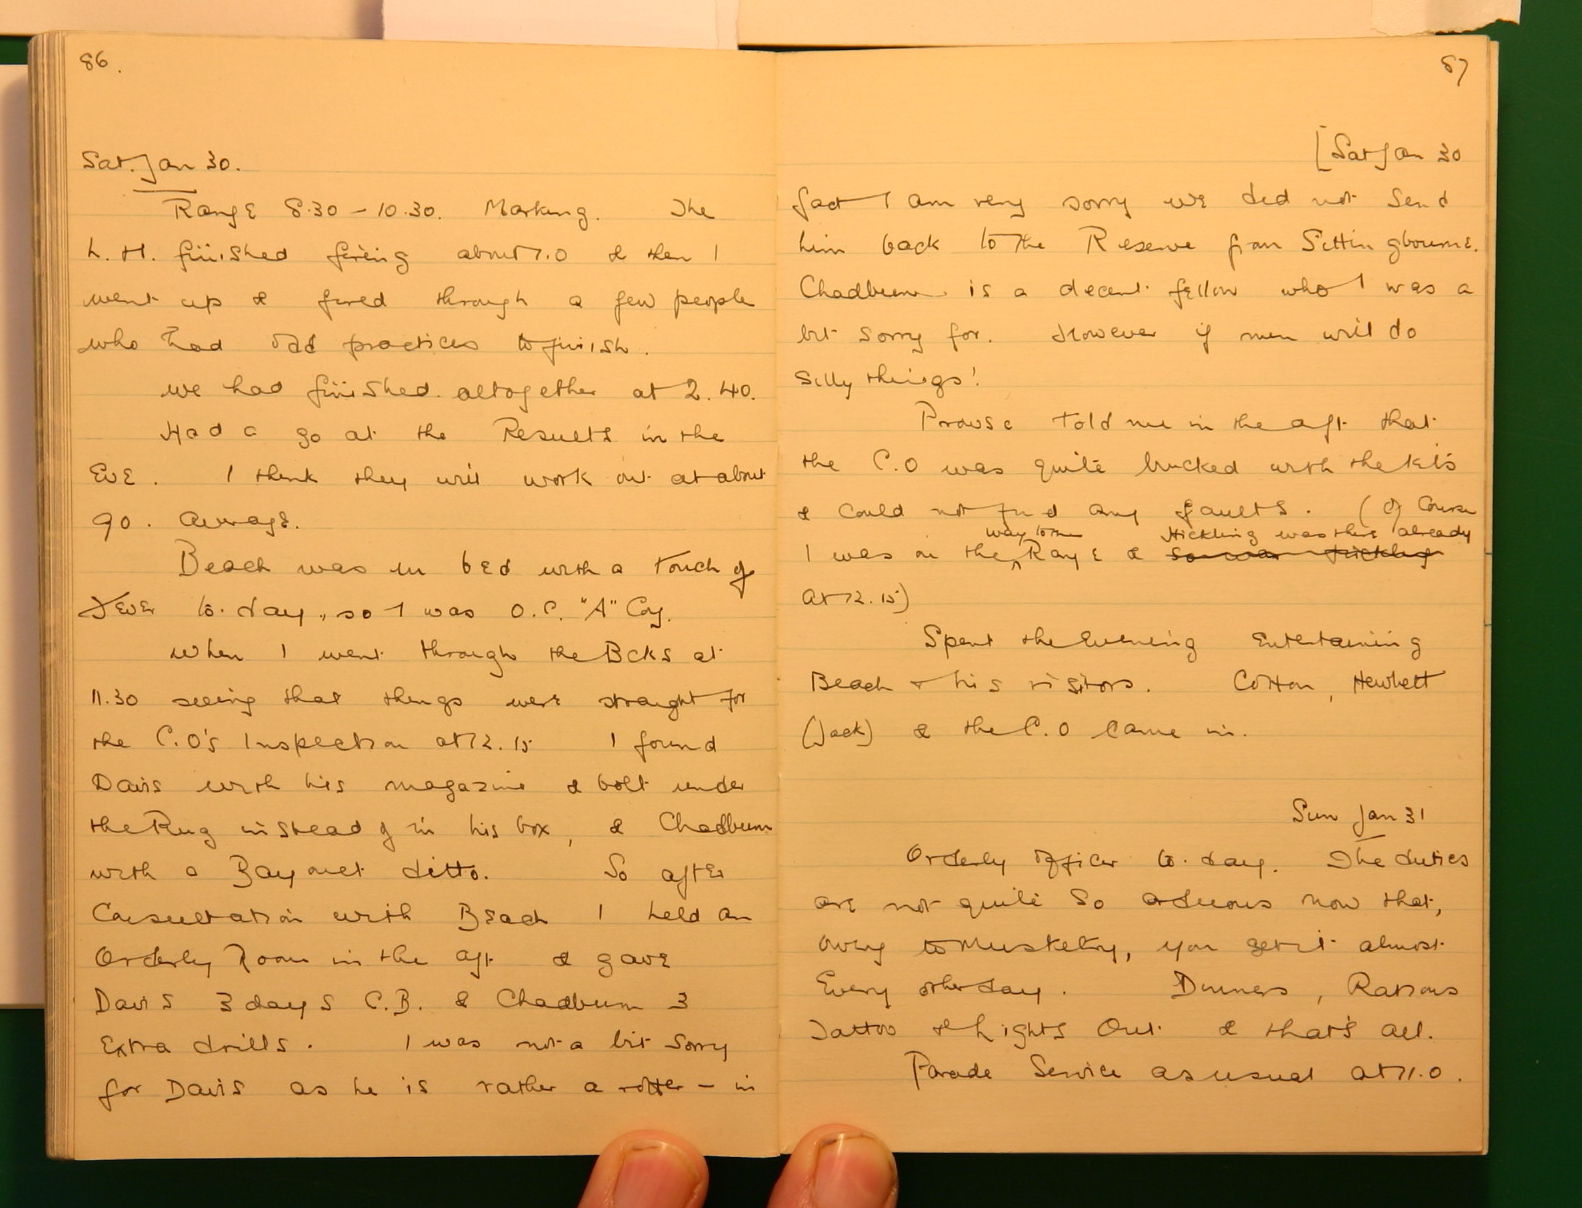 86.
Sat. Jan 30.
Range 8.30 - 10.30. Marking. The
L.H. finished firing about 1.0 & then I
went up & fired through a few people
who had odd practices to finish.
we had finished altogether at 2.40.
Had a go at the Results in the
Eve. I think they will work out at about
90. Average.
Beach was in bed with a touch of
Fever to-day, so I was O.C. "A" Coy.
When I went through the Bcks at
11.30 seeing that things were straight for
the C.O's Inspection at 12.15 I found
Davis with his magazine & bolt under
the Rug instead of in his box, & Chadburn
with a Bayonet ditto. So after
Consultation with Beach I held an
Orderly Room in the aft & gave
Davis 3 days C.B. & Chadburn 3
Extra drills. I was not a bit sorry
for Davis as he is rather a rotter - in
87
[Sat Jan 30
fact I am very sorry we did not send
him back to the Reserve from Sittingbourne.
Chadburn is a decent fellow who I was a
bit sorry for. However if men will do
silly things!
Prowse told me in the aft that
the C.O was quite bucked with the kits
& could not find any faults. (Of Course
way to the Hickling was there already
I was on the ^ Range & so was Hickling
at 12.15)
Spent the Evening Entertaining
Beach & his visitors. Cotton, Hewbett
(Jack) & the C.O came in.
Sun Jan 31
Orderly Officer to-day. The duties
are not quite so arduous now that,
owing to Musketry, you get it almost
Every other day. Dinners, Rations
Tattoo & Lights Out & that's all.
Parade Service as usual at 11.0.